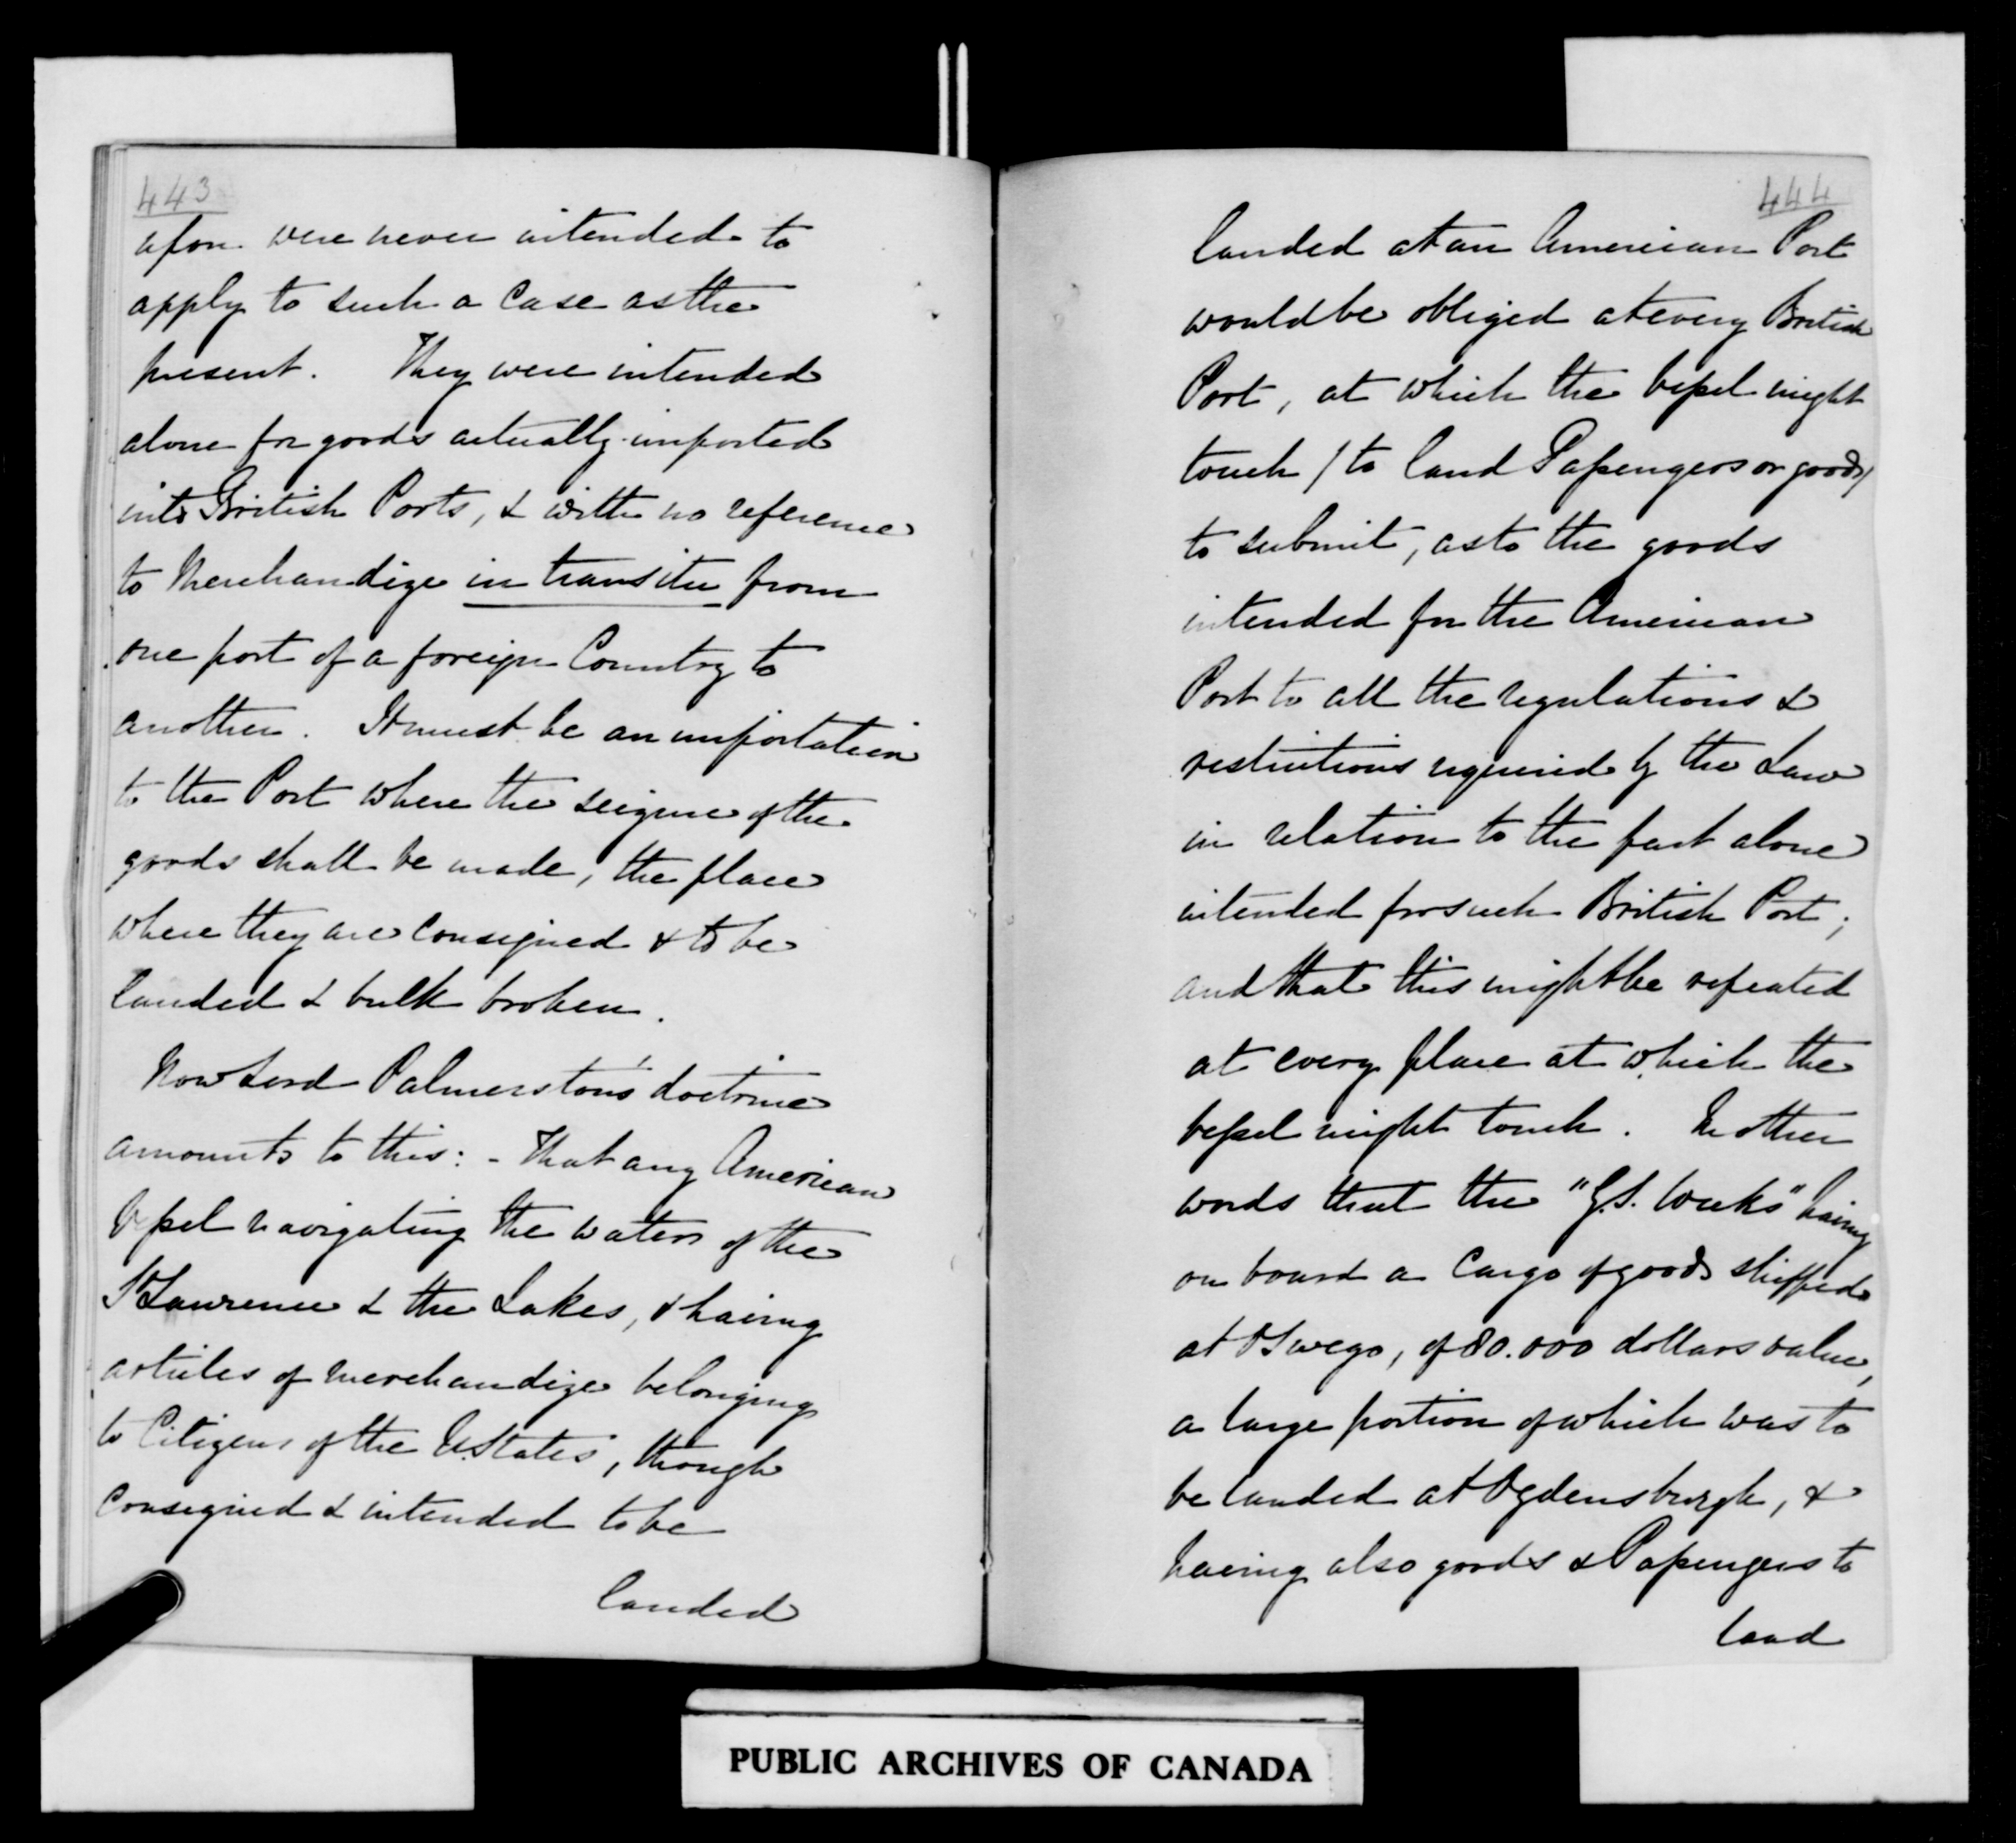 443
upon were never intended to
apply to such a case as the
present. They were intended
alone for goods actually imported
into British Ports, & with no reference
to Merchandize in transitu from
one port of a foreign Country to
another. It must be an importation
to the Port where the seizure of the
goods shall be made, the place
where they are consigned & to be
landed & bulk broken.
Now Lord Palmerston's doctrine
amounts to this: - That any American
Vessel navigating the waters of the
St Lawrence & the Lakes, & having
articles of merchandize belonging
to Citizens of the U. States, though
consigned & intended to be
landed
444
landed at an American Port
would be obliged at every British
Port, at which the vessel might
touch /to land Passengers or goods/
to submit, as to the goods
intended for the American
Port to all the regulations &
restrictions required by the Law
in relation to the part alone
intended for such British Port;
and that this might be repeated
at every place at which the
vessel might touch. In other
words that the "G.S. Weeks" having
on board a Cargo of goods shipped
at Oswego, of 80.000 dollars value,
a large portion of which was to
be landed at Ogdensburgh, &
having also goods & Passengers to
land
PUBLIC ARCHIVES OF CANADA